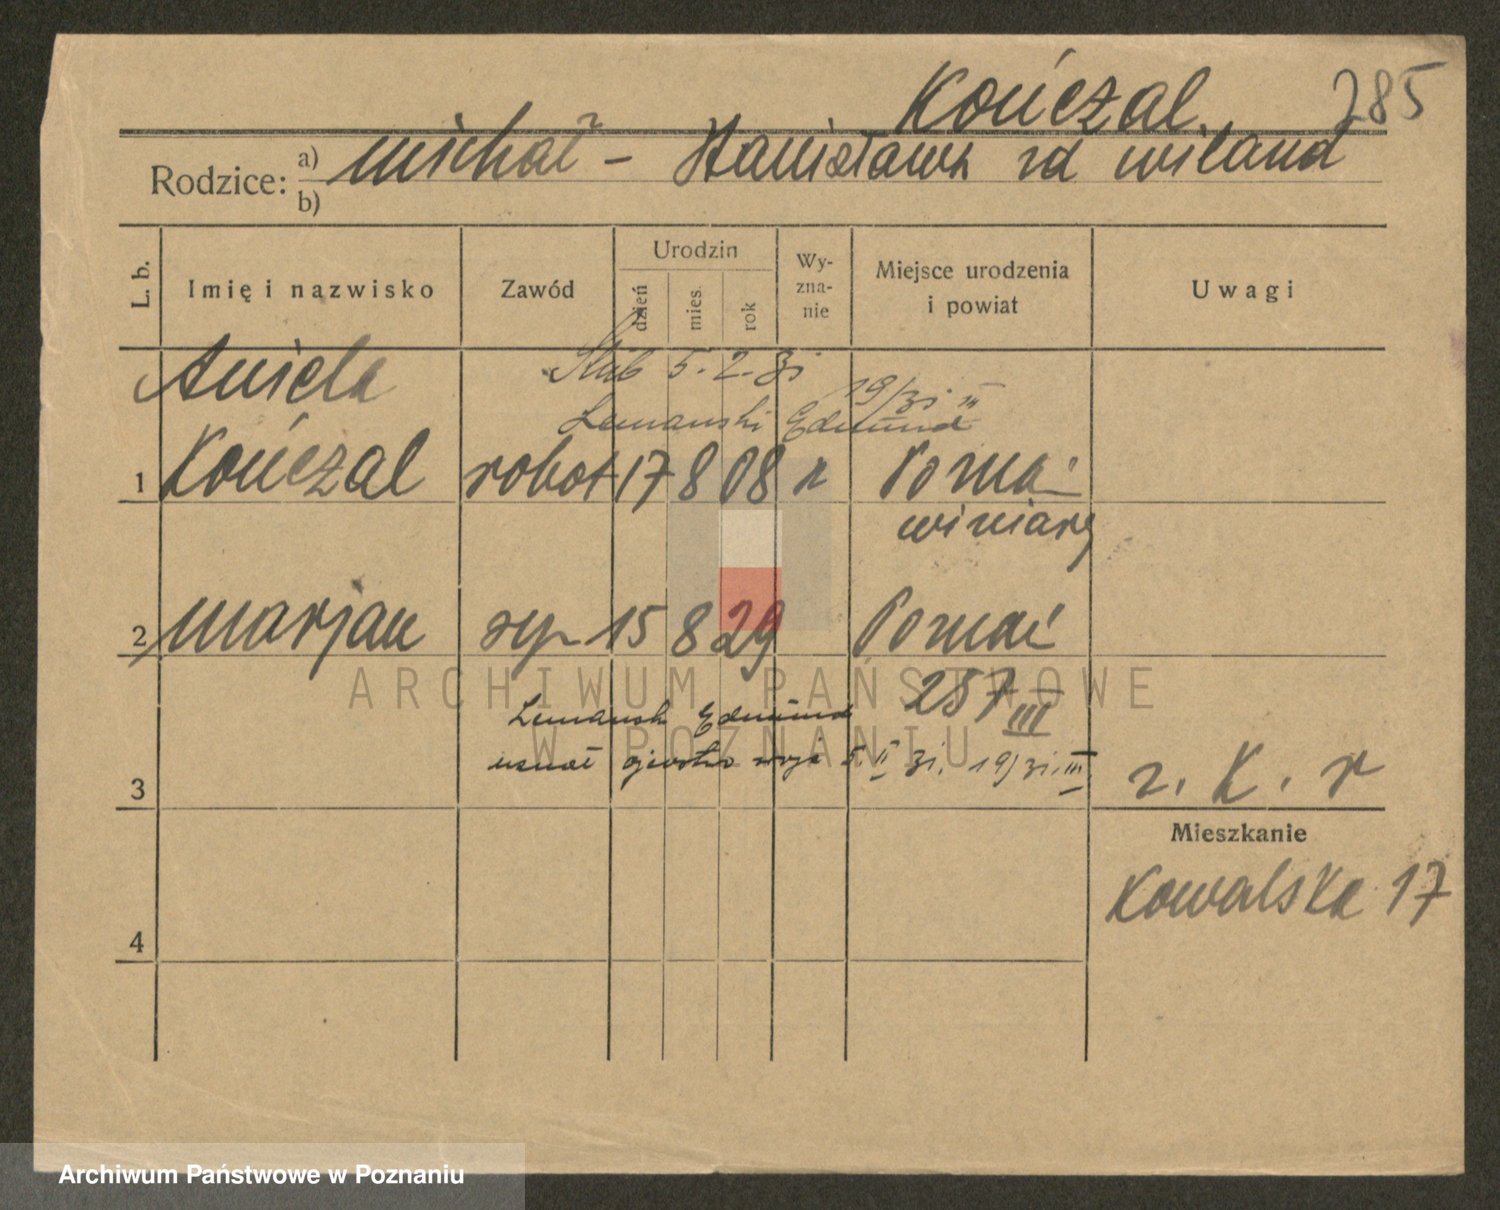 Kończal 285
Rodzice: a) Michał - Stanisława zd Wiland
b)
L. b. Imię i nazwisko Zawód Urodzin dzień mies. rok Wy-zna-nie Miejsce urodzenia i powiat Uwagi
Aniela Ślub 5.2.31 19/31 III
Lemański Edmund
1 Kończal robot 17 8 08 r Poznań
Winiary
2 Marjan syn 15 8 29 Poznań
257 III
Lemański Edmund
uznał ojcostwo 5 II 31. 19/31. III
3 r. K. r
Mieszkanie
Kowalska 17
4
ARCHIWUM PAŃSTWOWE
W POZNANIU
Archiwum Państwowe w Poznaniu